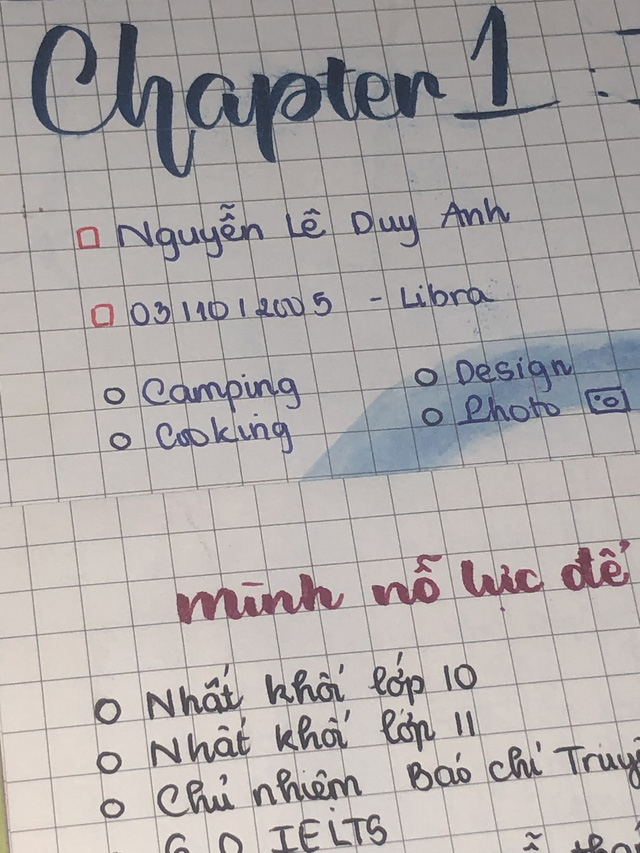 Chapter 1 :
Nguyễn Lê Duy Anh
03/10/2005 - Libra
Camping
Design
Cooking
Photo
mình nỗ lực để
Nhất khối lớp 10
Nhất khối lớp 11
Chủ nhiệm Báo chí
IELTS